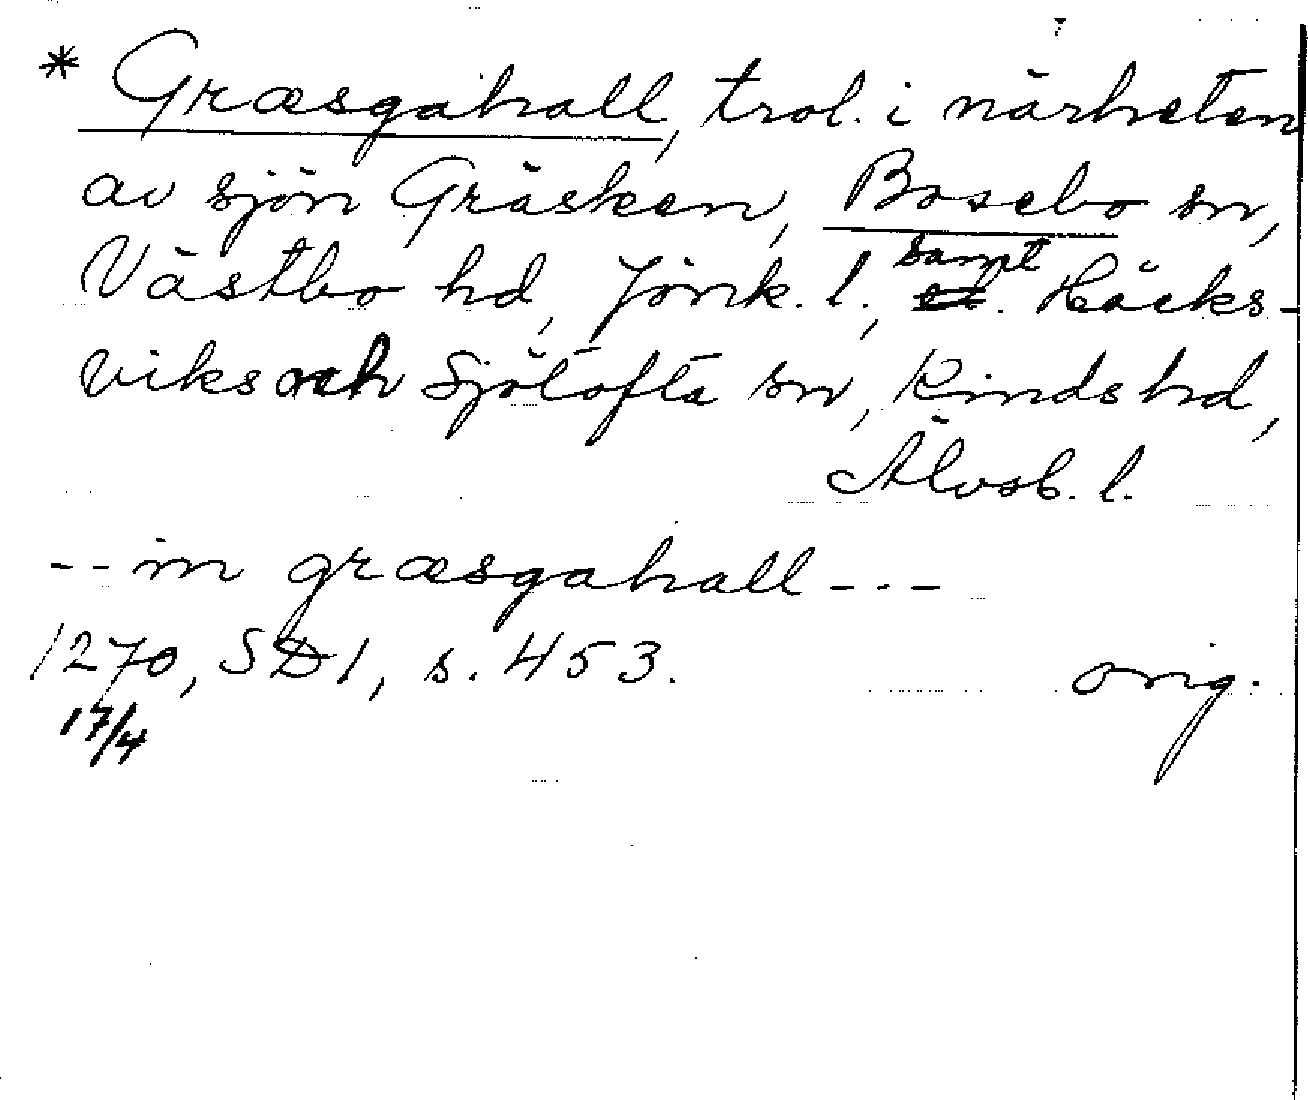 * Græsgahall, trol. i närheten
av sjön Gräsken, Bosebo sn,
Västbo hd, Jönk. l., samt Häcks-
viks och Sjötofta sn, Kinds hd,
Älvsb. l.
-- in græsgahall ---
1270, SD1, s. 453. orig.
17/4